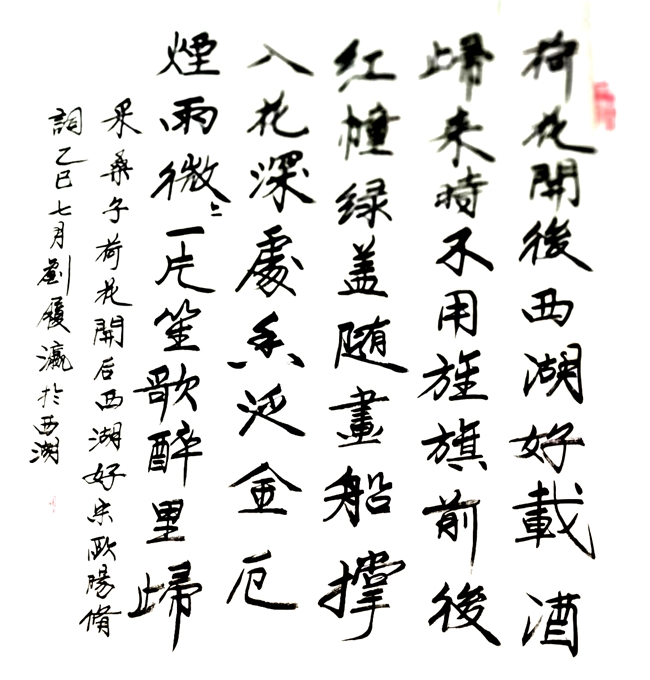 荷花開後西湖好載酒
歸来時不用旌旗前後
红幢绿盖随畫船撑
入花深處香泛金卮
煙雨微〻一片笙歌醉里歸
采桑子荷花開后西湖好宋歐陽脩
詞乙巳七月劉履瀛於西湖